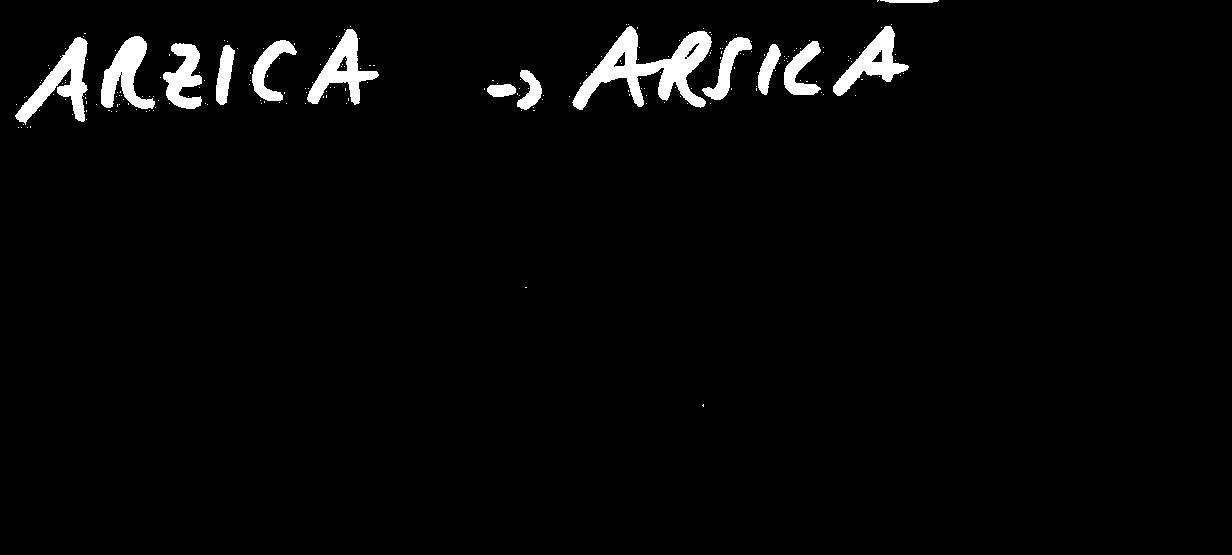 ARZICA -> ARSICA